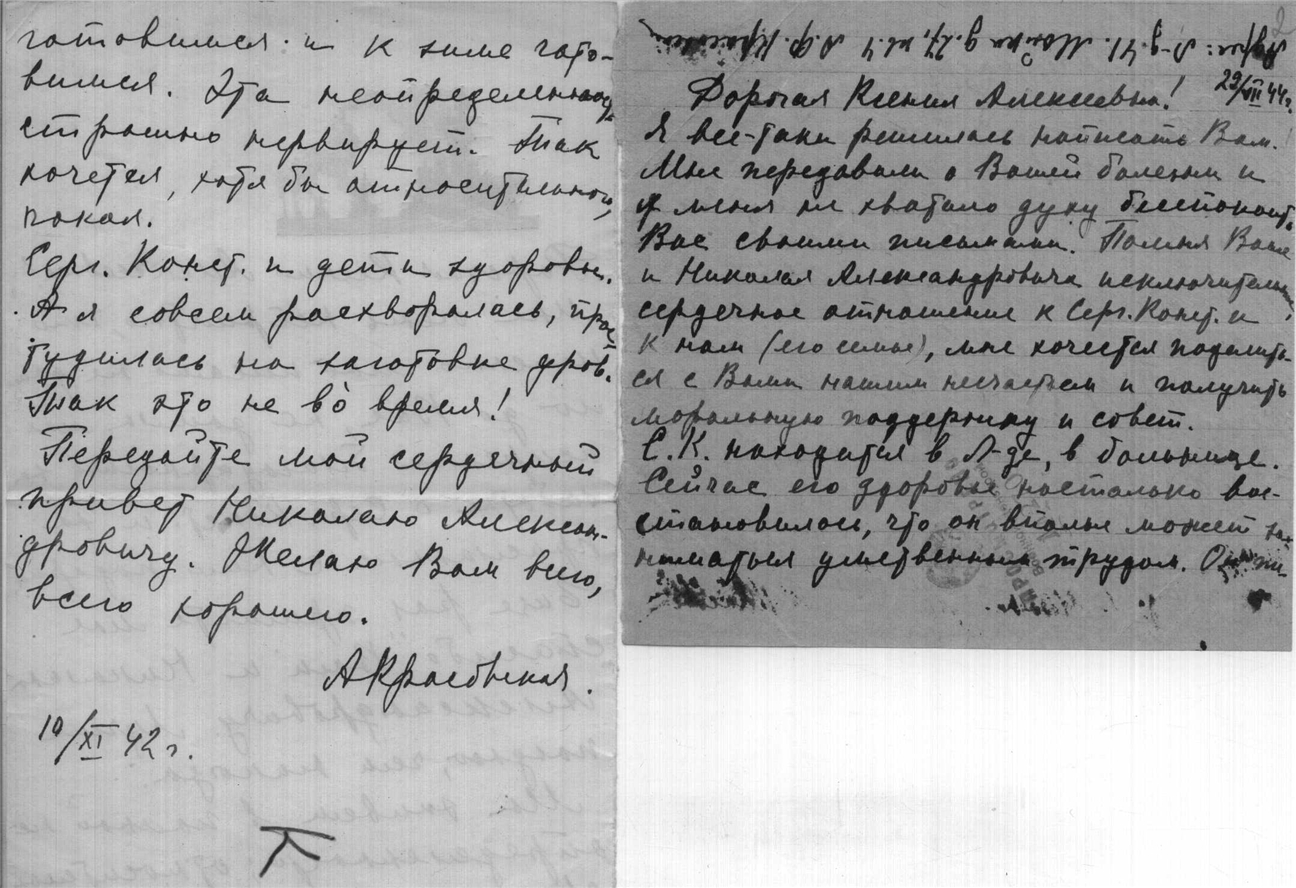 готовимся и к зиме гото-
вимся. Эта неопределенность
страшно нервирует. Так
хочется, хотя бы относительного,
покоя.
Серг. Конст. и дети здоровы.
А я совсем расхворалась, прос-
тудилась на заготовке дров.
Так это не во́ время!
Передайте мой сердечный
привет Николаю Алексан-
дровичу. Желаю Вам всего,
всего хорошего.
А Красовская.
10/XI 42 г.
2
Адрес: Л-д. 41. Мойка д. 27, кв. 4 А.Ф. Красовская
29/VII 44 г.
Дорогая Ксения Алексеевна!
Я все-таки решилась написать Вам.
Мне передавали о Вашей болезни и
у меня не хватало духу беспокоить
Вас своими письмами. Помня Ваше
и Николая Александровича исключительно
сердечное отношение к Серг. Конст. и
к нам (его семье), мне хочется поделить-
ся с Вами нашим несчастьем и получить
моральную поддержку и совет.
С. К. находится в Л-де, в больнице.
Сейчас его здоровье настолько вос-
становилось, что он вполне может за-
ниматься умственным трудом. Он